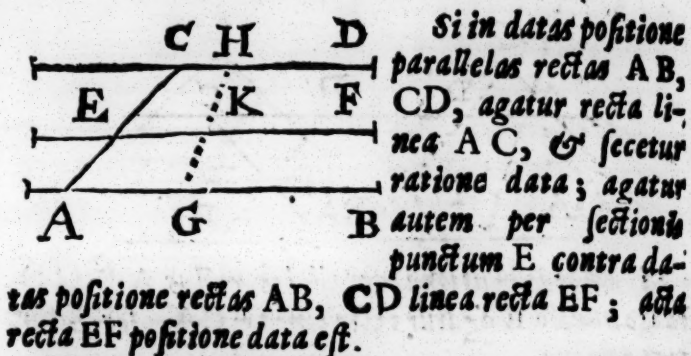 C H D
E K F
A G B
Si in datas positione
parallelas rectas AB,
CD, agatur recta li-
nea AC, & secetur
ratione data; agatur
autem per sectionis
punctum E contra da-
tas positione rectas AB, CD linea recta EF; acta
recta EF positione data est.